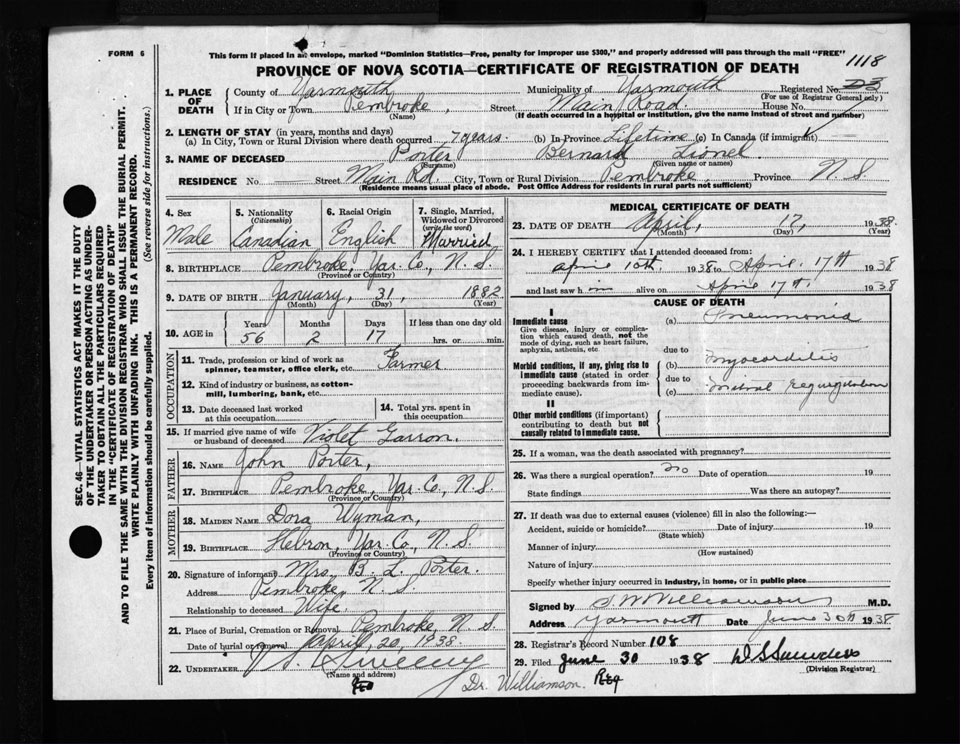 FORM 6
This form if placed in an envelope, marked "Dominion Statistics—Free, penalty for improper use $300," and properly addressed will pass through the mail "FREE"
1118
PROVINCE OF NOVA SCOTIA—CERTIFICATE OF REGISTRATION OF DEATH
1. PLACE OF DEATH County of Yarmouth Municipality of Yarmouth Registered No.
(For use of Registrar General only)
If in City or Town Pembroke, Street Main Road. House No.
(Name) (If death occurred in a hospital or institution, give the name instead of street and number)
2. LENGTH OF STAY (in years, months and days)
(a) In City, Town or Rural Division where death occurred 7 years. (b) In Province Lifetime (c) In Canada (if immigrant)
3. NAME OF DECEASED Porter Bernard Lionel.
(Surname) (Given name or names)
RESIDENCE No. Street Main Rd. City, Town or Rural Division Pembroke, Province N. S.
(Residence means usual place of abode. Post Office Address for residents in rural parts not sufficient)
4. Sex Male
5. Nationality (Citizenship) Canadian
6. Racial Origin English
7. Single, Married, Widowed or Divorced (write the word) Married
8. BIRTHPLACE Pembroke, Yar. Co., N. S.
(Province or Country)
9. DATE OF BIRTH January, 31, 1882
(Month) (Day) (Year)
10. AGE in Years 56 Months 2 Days 17 If less than one day old hrs. or min.
OCCUPATION
11. Trade, profession or kind of work as spinner, teamster, office clerk, etc. Farmer
12. Kind of industry or business, as cotton-mill, lumbering, bank, etc.
13. Date deceased last worked at this occupation
14. Total yrs. spent in this occupation
15. If married give name of wife or husband of deceased Violet Garron.
FATHER
16. NAME John Porter,
17. BIRTHPLACE Pembroke, Yar. Co., N. S.
(Province or Country)
MOTHER
18. MAIDEN NAME Dora Wyman,
19. BIRTHPLACE Hebron, Yar. Co., N. S.
(Province or Country)
20. Signature of informant Mrs. B. L. Porter.
Address Pembroke, N. S.
Relationship to deceased Wife.
21. Place of Burial, Cremation or Removal Pembroke, N. S.
Date of burial or removal April, 20, 1938.
22. UNDERTAKER Sweeny
(Name and address)
MEDICAL CERTIFICATE OF DEATH
23. DATE OF DEATH April, 17, 1938.
(Month) (Day) (Year)
24. I HEREBY CERTIFY that I attended deceased from:
April 10th. 1938 to April. 17th 1938
and last saw him alive on April 17th. 1938
CAUSE OF DEATH
I
Immediate cause
Give disease, injury or complication which caused death, not the mode of dying, such as heart failure, asphyxia, asthenia, etc.
(a) Pneumonia
due to
Morbid conditions, if any, giving rise to immediate cause (stated in order proceeding backwards from immediate cause).
(b) Myocarditis
due to
(c) Mitral Regurgitation
II
Other morbid conditions (if important) contributing to death but not causally related to immediate cause.
25. If a woman, was the death associated with pregnancy?
26. Was there a surgical operation? no Date of operation 19
State findings Was there an autopsy?
27. If death was due to external causes (violence) fill in also the following:—
Accident, suicide or homicide? Date of injury 19
(State which)
Manner of injury
(How sustained)
Nature of injury
Specify whether injury occurred in industry, in home, or in public place
Signed by Williamson M.D.
Address Yarmouth Date June 30th 1938
28. Registrar's Record Number 108
29. Filed June 30 1938 Saunders
(Division Registrar)
Dr. Williamson. Reg
SEC. 46—VITAL STATISTICS ACT MAKES IT THE DUTY OF THE UNDERTAKER OR PERSON ACTING AS UNDERTAKER TO OBTAIN ALL THE PARTICULARS REQUIRED IN THE "CERTIFICATE OF REGISTRATION OF DEATH" AND TO FILE THE SAME WITH THE DIVISION REGISTRAR WHO SHALL ISSUE THE BURIAL PERMIT.
WRITE PLAINLY WITH UNFADING INK. THIS IS A PERMANENT RECORD.
Every item of information should be carefully supplied. (See reverse side for instructions.)